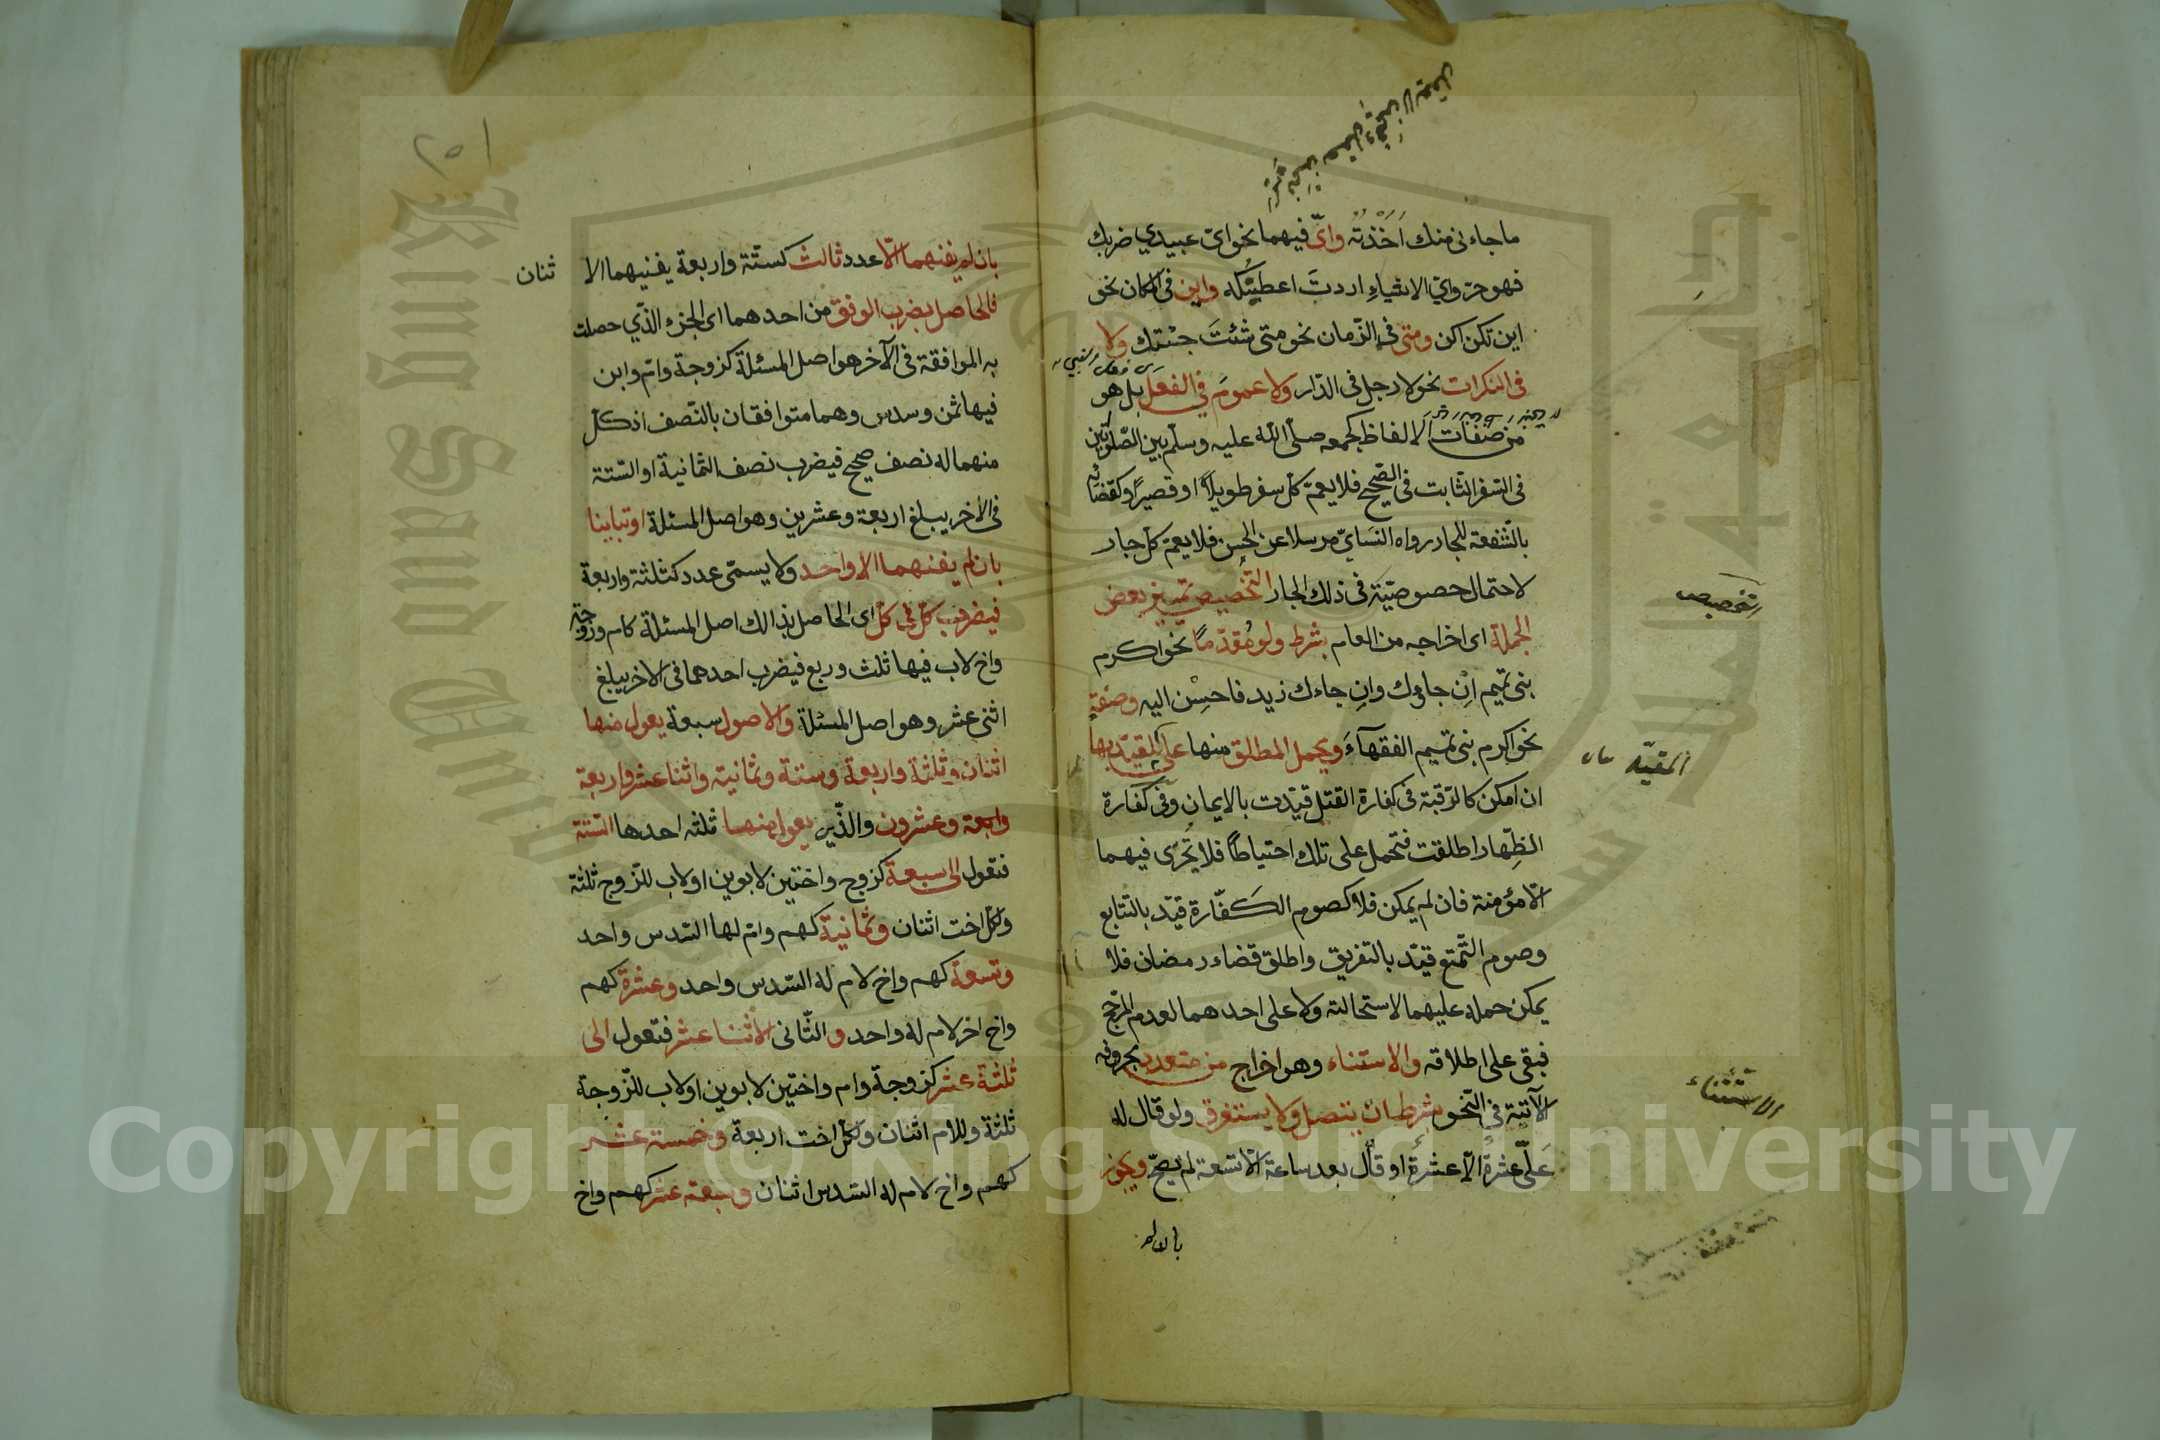 ما جاءنى منك اخذته واىّ فيهما نحو اىّ عبيدي ضربك
فهو حرّ واىّ الاشياءِ اردتَ اعطيتُكه واين فى المكان نحو
اين تكن اكن ومتى في الزّمان نحو متى شئتَ جئتك ولا
فى النكرات نحو لا رجل فى الدّار ولا عموم في الفعل بل هو
من صفات الالفاظ كجمعه صلّى اللّه عليه وسلّم بين الصّلوتين
فى السّفر الثابت فى الصّحيح فلا يعمّ كلّ سفر طويلاً او قصيرًا وكقضائه
بالشّفعة للجار رواه النّسايّ مرسلا عن الحسن فلا يعمّ كلّ جار
لاحتمال خصوصيّة فى ذلك الجار التّخصيص تمييز بعض
الجملة اى اخراجه من العام بشرط ولو مُقدّمًا نحو اكرم
بنى تميم اِنْ جاؤك وانِ جاءك زيد فاحسِنْ اليه وصفةٍ
نحو اكرم بنى تميم الفقهآءَ ويحمل المطلق منها على المقيّد بها
ان امكن كالرّقبة فى كفارة القتل قيّدت بالايمان وفى كفارة
الظِّهار اطلقت فتحمل على تلك احتياطًا فلا تُجزى فيهما
الاّ مؤمنة فان لم يمكن فلا كصوم الكَفّارة قيّد بالتتابع
وصوم التّمتع قيّد بالتفريق واطلق قضاء رمضان فلا
يمكن حمله عليهما لاستحالته ولا على احدهما لعدم المرجّح
فبقى على اطلاقه والاستثناء وهو اخراج من متعدد بحروفه
الآتية فى النّحو بشرط ان يتصل ولا يستغرق ولو قال له
عَلىّ عشرةٌ الاّ عشرةً او قال بعد ساعة الاّ تسعة لم يصحّ ويجوز
التخصيص
المقيّد
الاستثناء
٢٥١
بان لم يفنهما الاّ عدد ثالث كستّة واربعة يفنيهما الا ثنان
فالحاصل بضرب الوفق من احدهما اى الجزء الذّي حصلت
به الموافقة فى الآخر هو اصل المسئلة كزوجة وامّ وابن
فيها ثمن وسدس وهما متوافقان بالنّصف اذ كلّ
منهما له نصف صحيح فيضرب نصف الثمانية او السّتة
فى الاخر يبلغ اربعة وعشرين وهو اصل المسئلة او تباينا
بان لم يفنهما الا واحد ولا يسمّى عدد كثلثة واربعة
فيضرب كلّ فى كلّ اى الحاصل بذالك اصل المسئلة كام وزوجة
واخ لاب فيها ثلث وربع فيضرب احدهما فى الاخر يبلغ
اثنى عشر وهو اصل المسئلة والاصول سبعة يعول منها
اثنان وثلثة واربعة وستة وثمانية واثنا عشر واربعة
واربعة وعشرون والذّى يعول منها ثلثه احدها السّتة
فتعول الى سبعة كزوج واختين لابوين او لاب للزّوج ثلثة
ولكل اخت اثنان وثمانية كهم وامّ لها السّدس واحد
وتسعة كهم واخ لام له السّدس واحد وعشرة كهم
واخ اخر لام له واحد والثّانى الاثنا عشر فتعول الى
ثلثة عشر كزوجة وام واختين لابوين او لاب للزّوجة
ثلثة وللام اثنان ولكل اخت اربعة وخمسة عشر
كهم واخ لام له السّدس اثنان وسبعة عشر كهم واخ
Copyright © King Saud University
King Saud University
جامعة الملك سعود